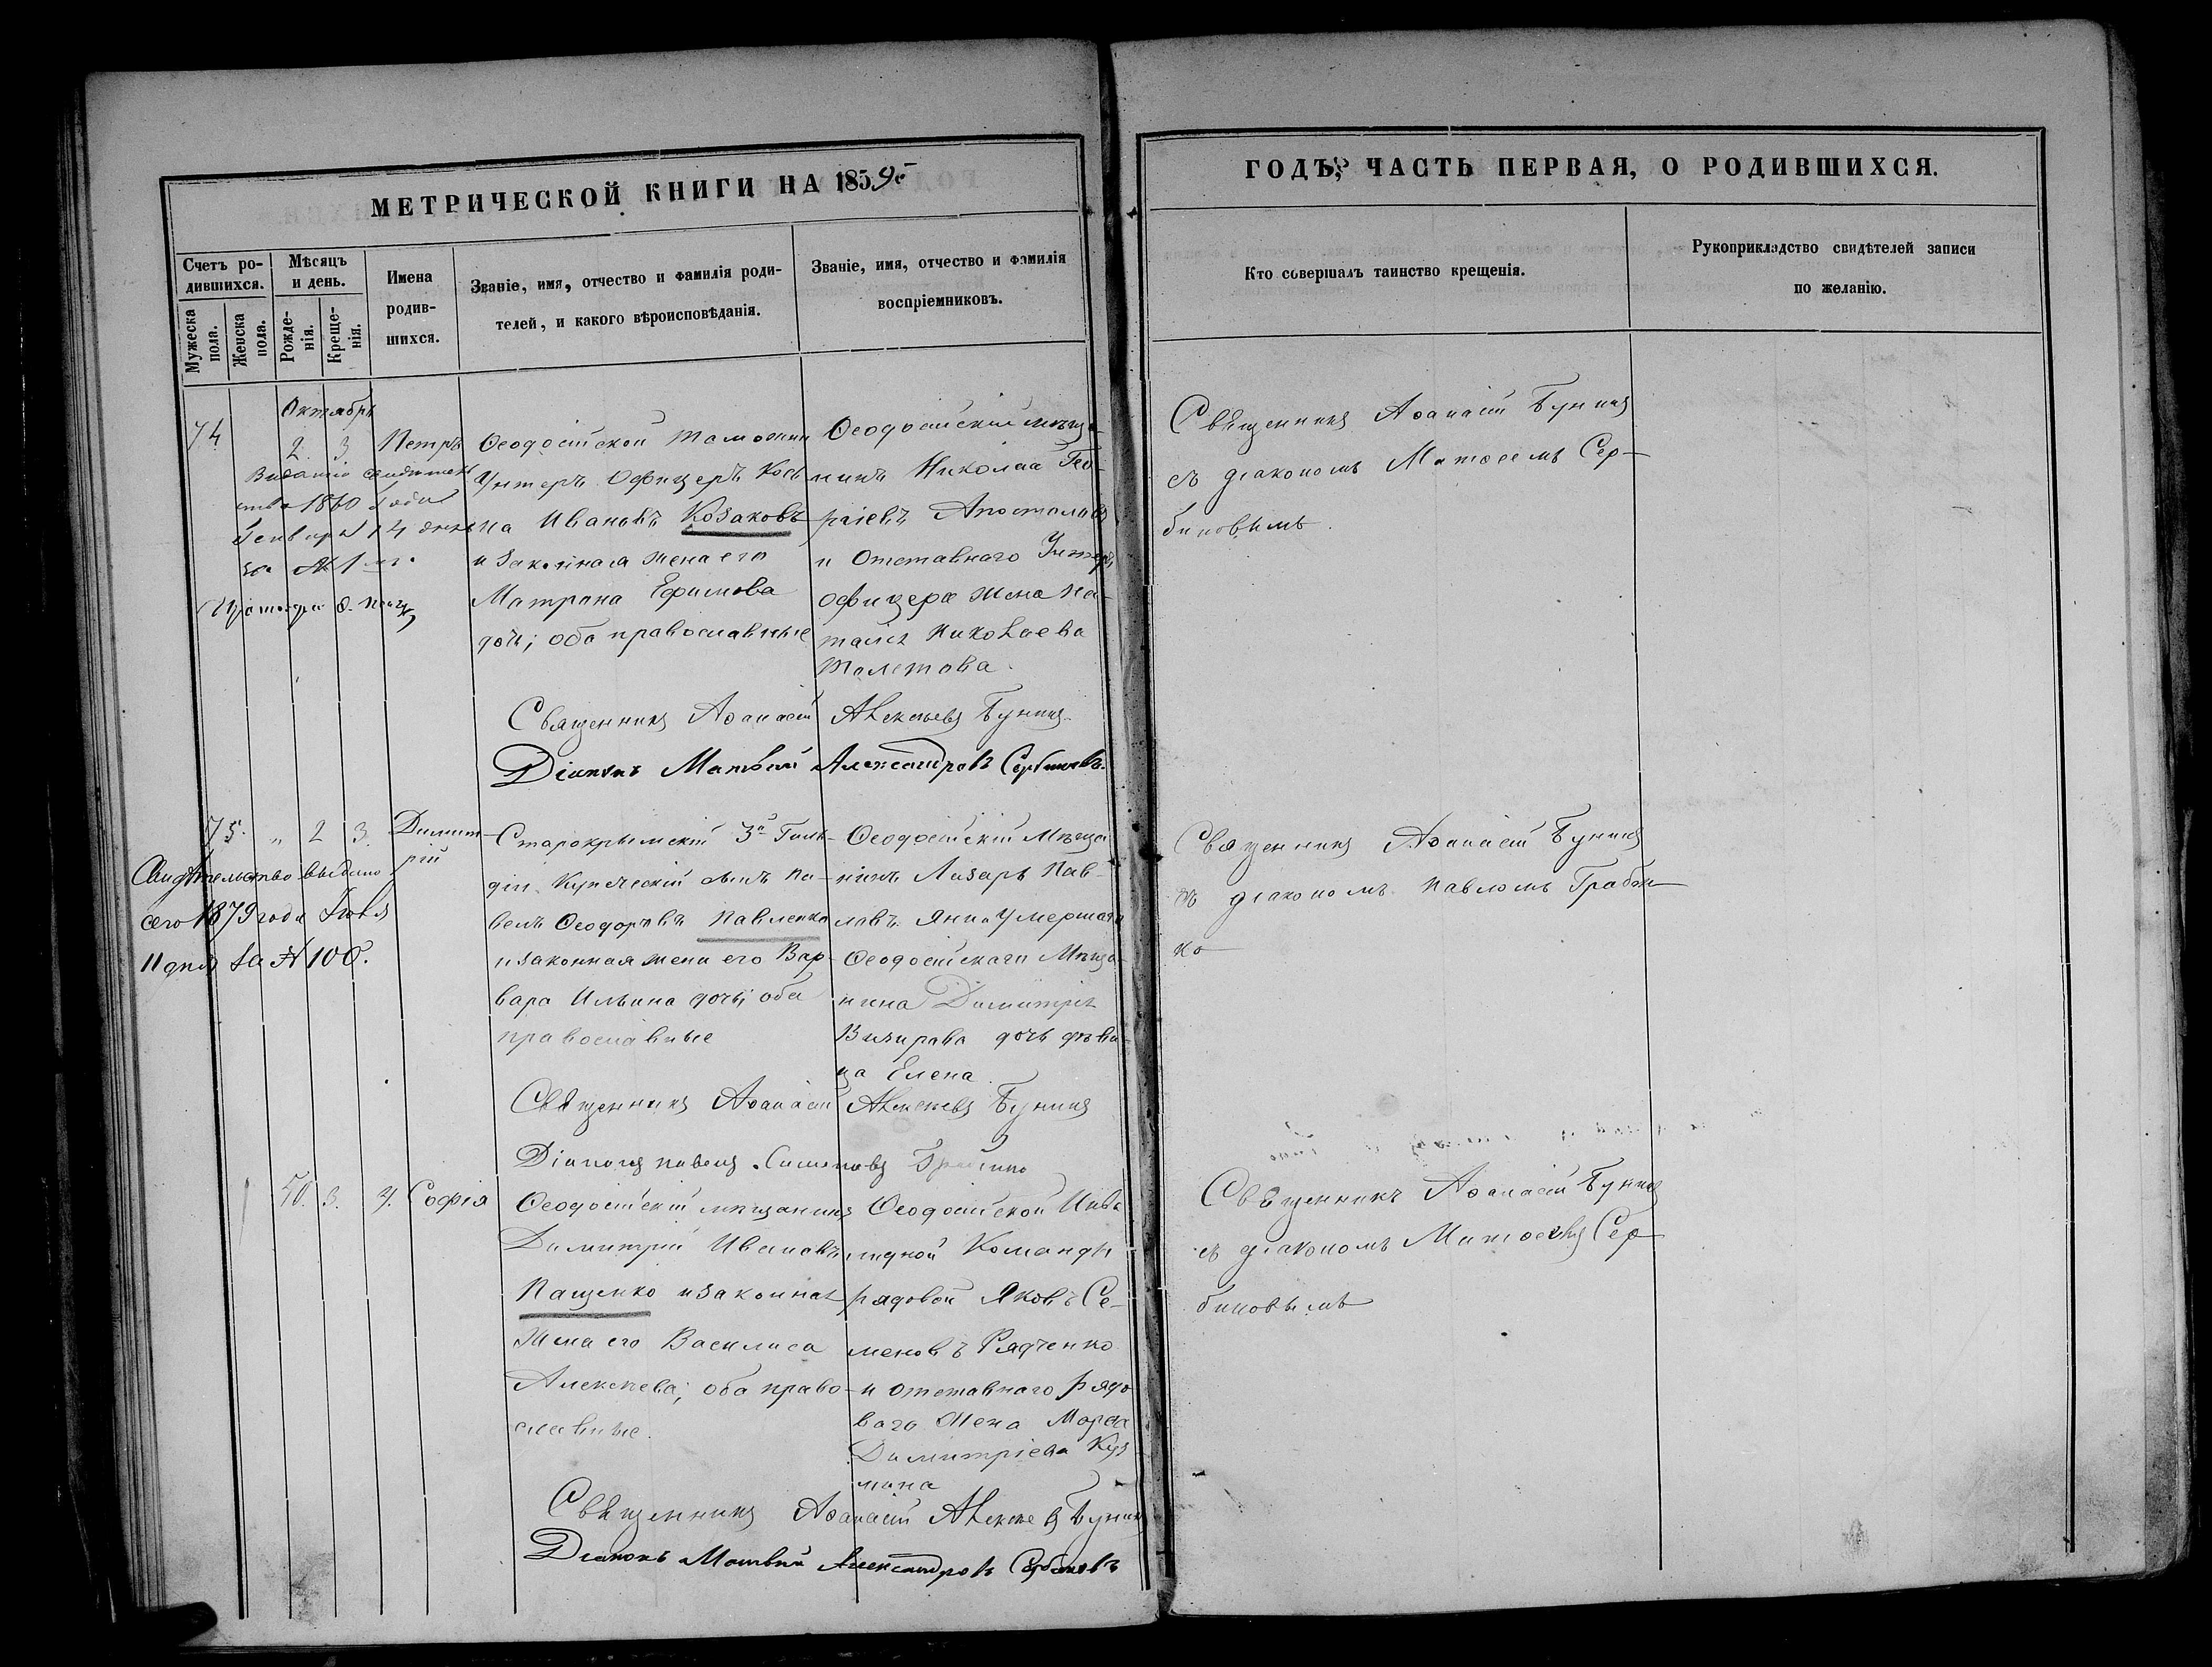 МЕТРИЧЕСКОЙ КНИГИ НА 1859й
Счетъ ро-
дившихся.
Мужеска пола.
Женска пола.
Мѣсяцъ
и день.
Рожде-
нія.
Креще-
нія.
Имена
родив-
шихся.
Званіе, имя, отчество и фамилія роди-
телей, и какого вѣроисповѣданія.
Званіе, имя, отчество и фамилія
воспріемниковъ.
Октябрь
74 2. 3 Петръ
Выдано свидетель
ство 1860 года
Генваря 14 дня
за № 1
Ѳеодосійской Таможни
Унтеръ Офицеръ Кось
ма Ивановъ Козаковъ
и законная жена его
Матрона Ефимова
дочь; оба православные
Ѳеодосійскій мѣща-
нинъ Николай Гео-
ргіевъ Апостоловъ
и Отставнаго Унтеръ
офицера жена На-
талія Николаева
Священникъ Аѳанасій Алексѣевъ Бунинъ
Діаконъ Матвѣй Александровъ Сербиновъ.
75. " 2 3. Димит-
рій
Свидѣтельство выдано
сего 1879 года Іюля
11 дня за № 106.
Старокрымскій 3й Гиль-
діи Купеческій сынъ Па-
велъ Ѳеодоровъ Павленко
и законная жена его Вар-
вара Ильина дочь; оба
православные
Ѳеодосійскій Мѣща-
нинъ Лазарь Пав-
ловъ Яни и Умершаго
Ѳеодосійскаго Мѣща-
нина Димитрія
Визирова дочь дѣви-
ца Елена.
Священникъ Аѳанасій Алексѣевъ Бунинъ
Діаконъ Павелъ Симеоновъ
50. 3. 4. Софія
Ѳеодосійскій мѣщанинъ
Димитрій Ивановъ
Пащенко и законная
жена его Василиса
Алексѣева; оба право-
славные.
Ѳеодосійской Инва
лидной Команды
рядовой Яковъ Се-
меновъ Рядченко
и отставнаго рядо-
ваго Жена Марѳа
Димитріева Куз
мина
Священникъ Аѳанасій Алексѣевъ Бунинъ
Діаконъ Матвѣй Александровъ Сербиновъ
ГОДЪ, ЧАСТЬ ПЕРВАЯ, О РОДИВШИХСЯ.
Кто совершалъ таинство крещенія.
Рукоприкладство свидѣтелей записи
по желанію.
Священникъ Аѳанасій Бунинъ
съ діакономъ Матѳеемъ Сер-
биновымъ.
Священникъ Аѳанасій Бунинъ
съ діакономъ Павломъ Грабен-
ко
Священникъ Аѳанасій Бунинъ
съ діакономъ Матѳеемъ Сер-
биновымъ